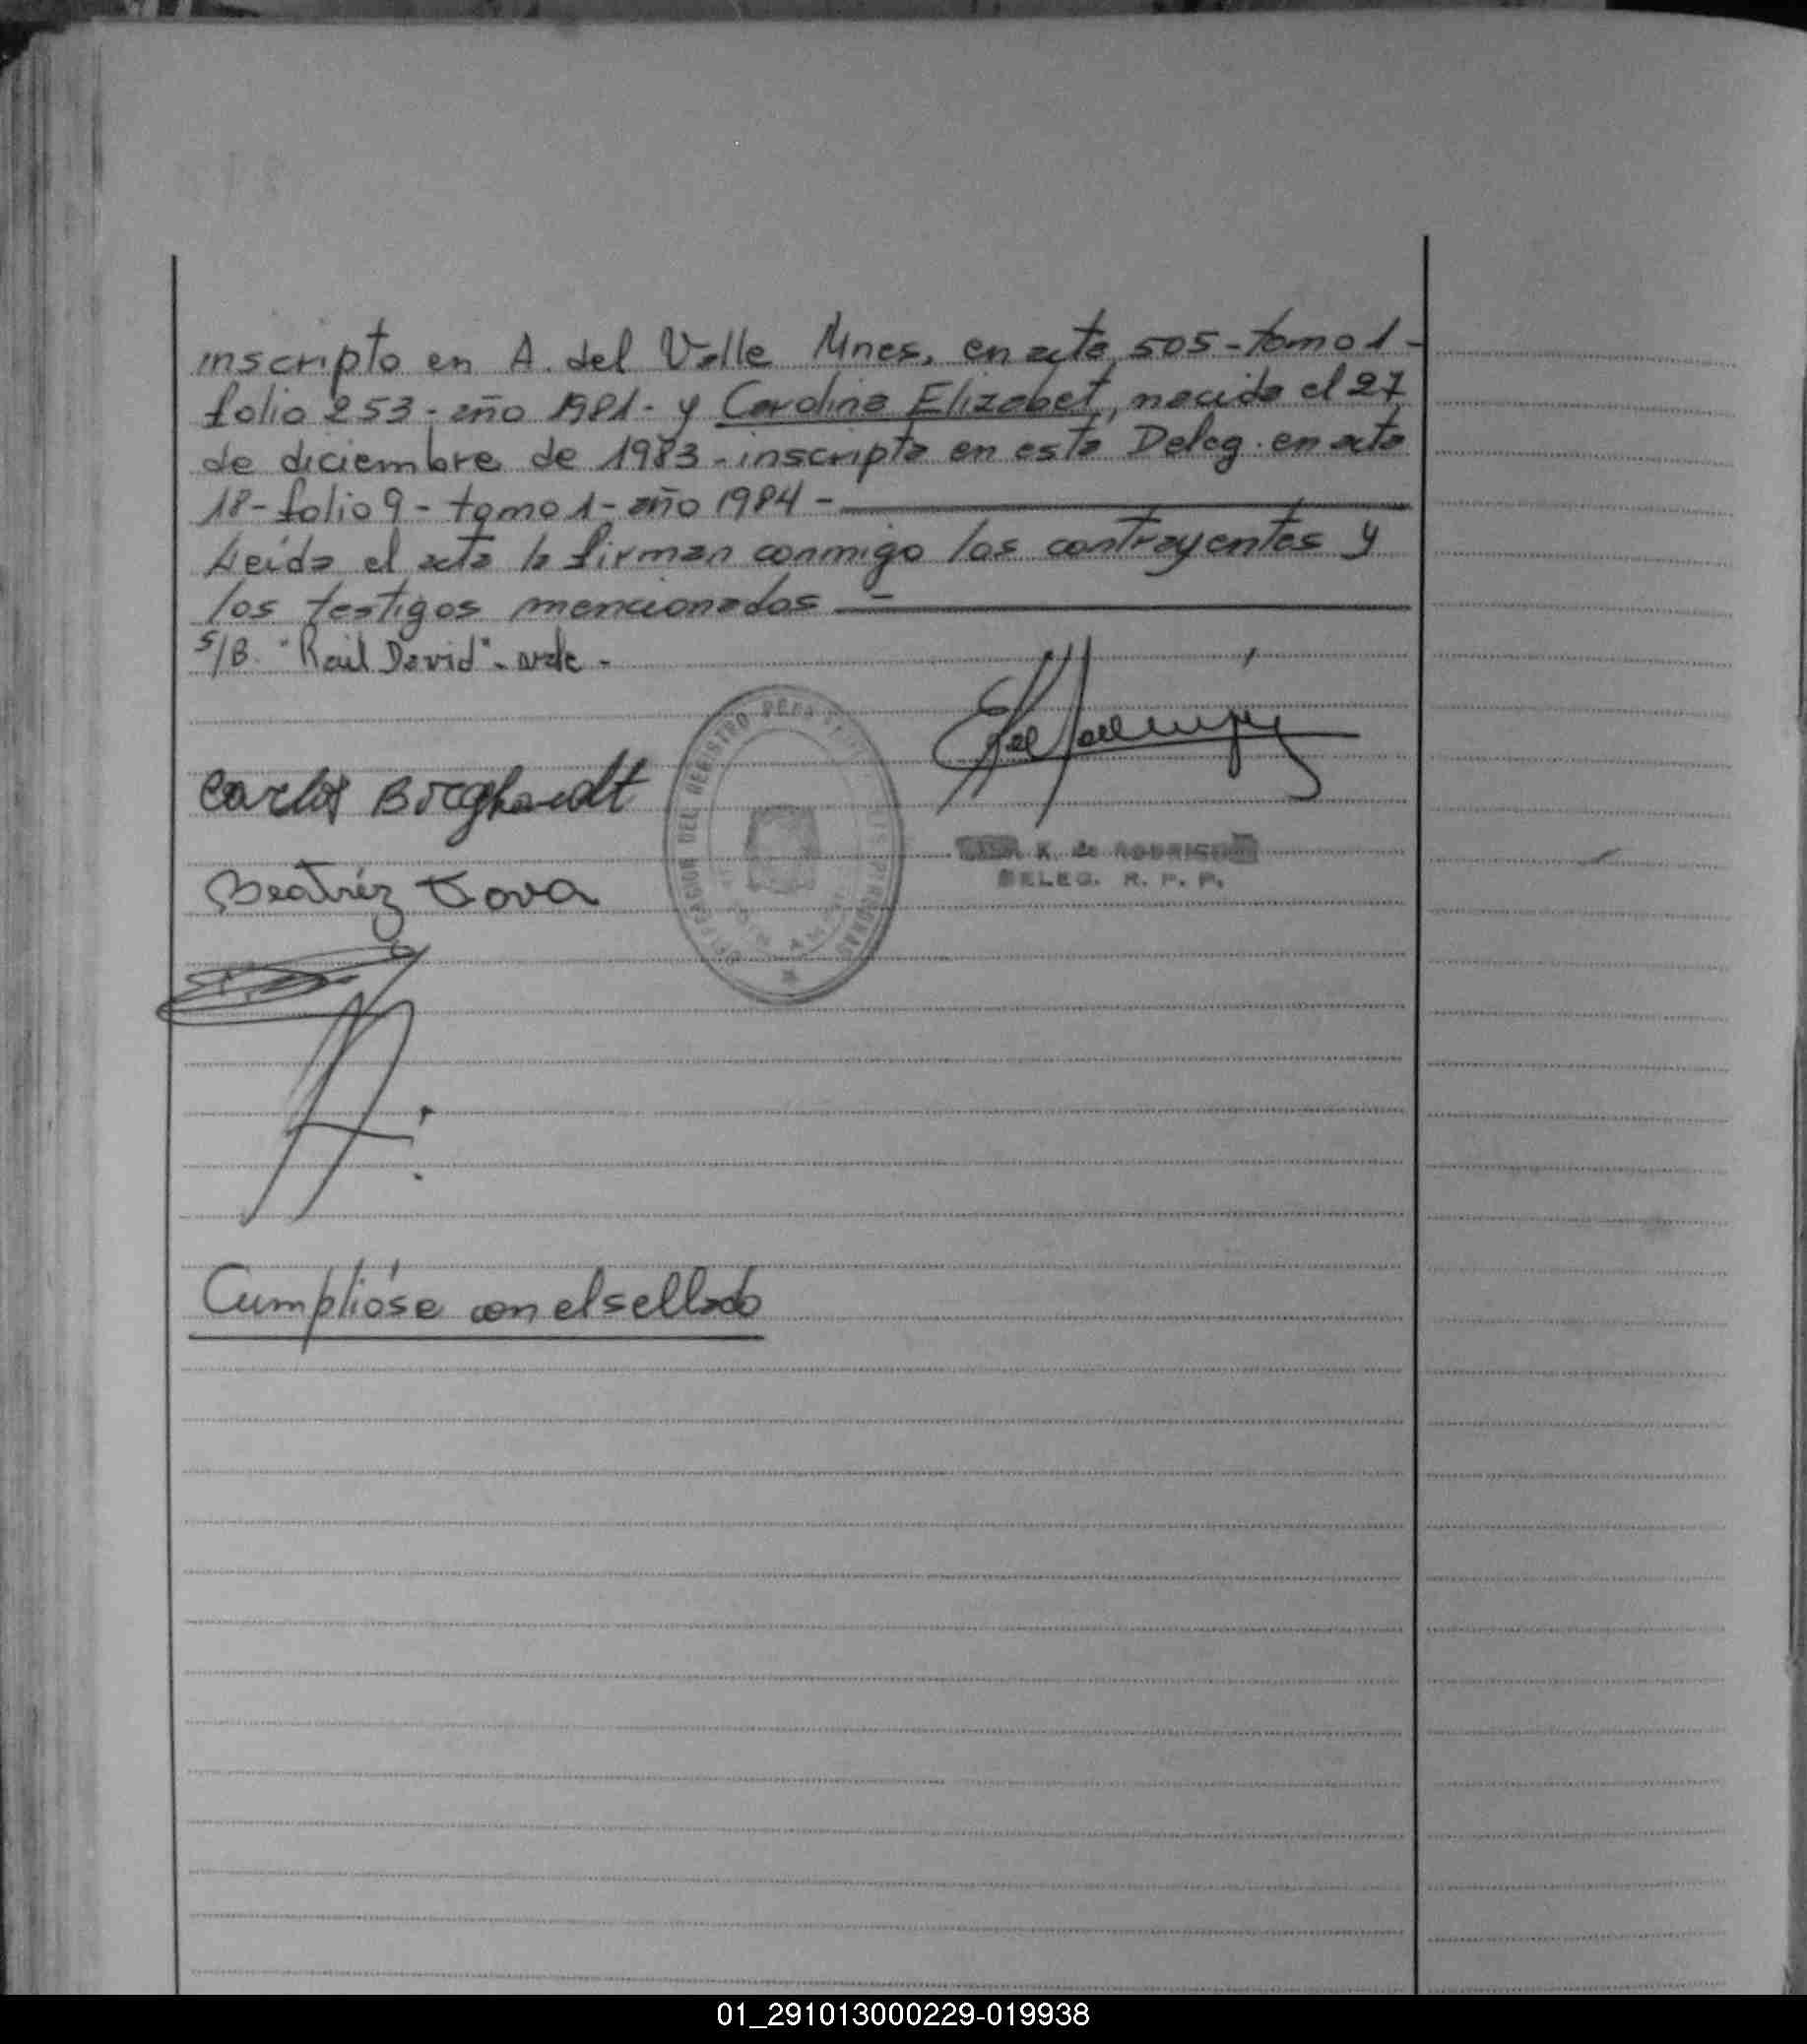 inscripto en A. del Valle Mnes, en acta 505-tomo 1-
folio 253- año 1981- y Carolina Elizabet, nacida el 27
de diciembre de 1983-inscripta en esta Deleg. en acta
18-folio 9- tomo 1- año 1984 -
Leída el acta la firman conmigo los contrayentes y
los testigos mencionados -
S/B. "Raúl David"- vale -
Carlos Borghardt
K. de RODRIGUEZ
DELEG. R. P. P.
Beatríz
DEL REGISTRO
Cumplióse con el sellado
01_291013000229-019938